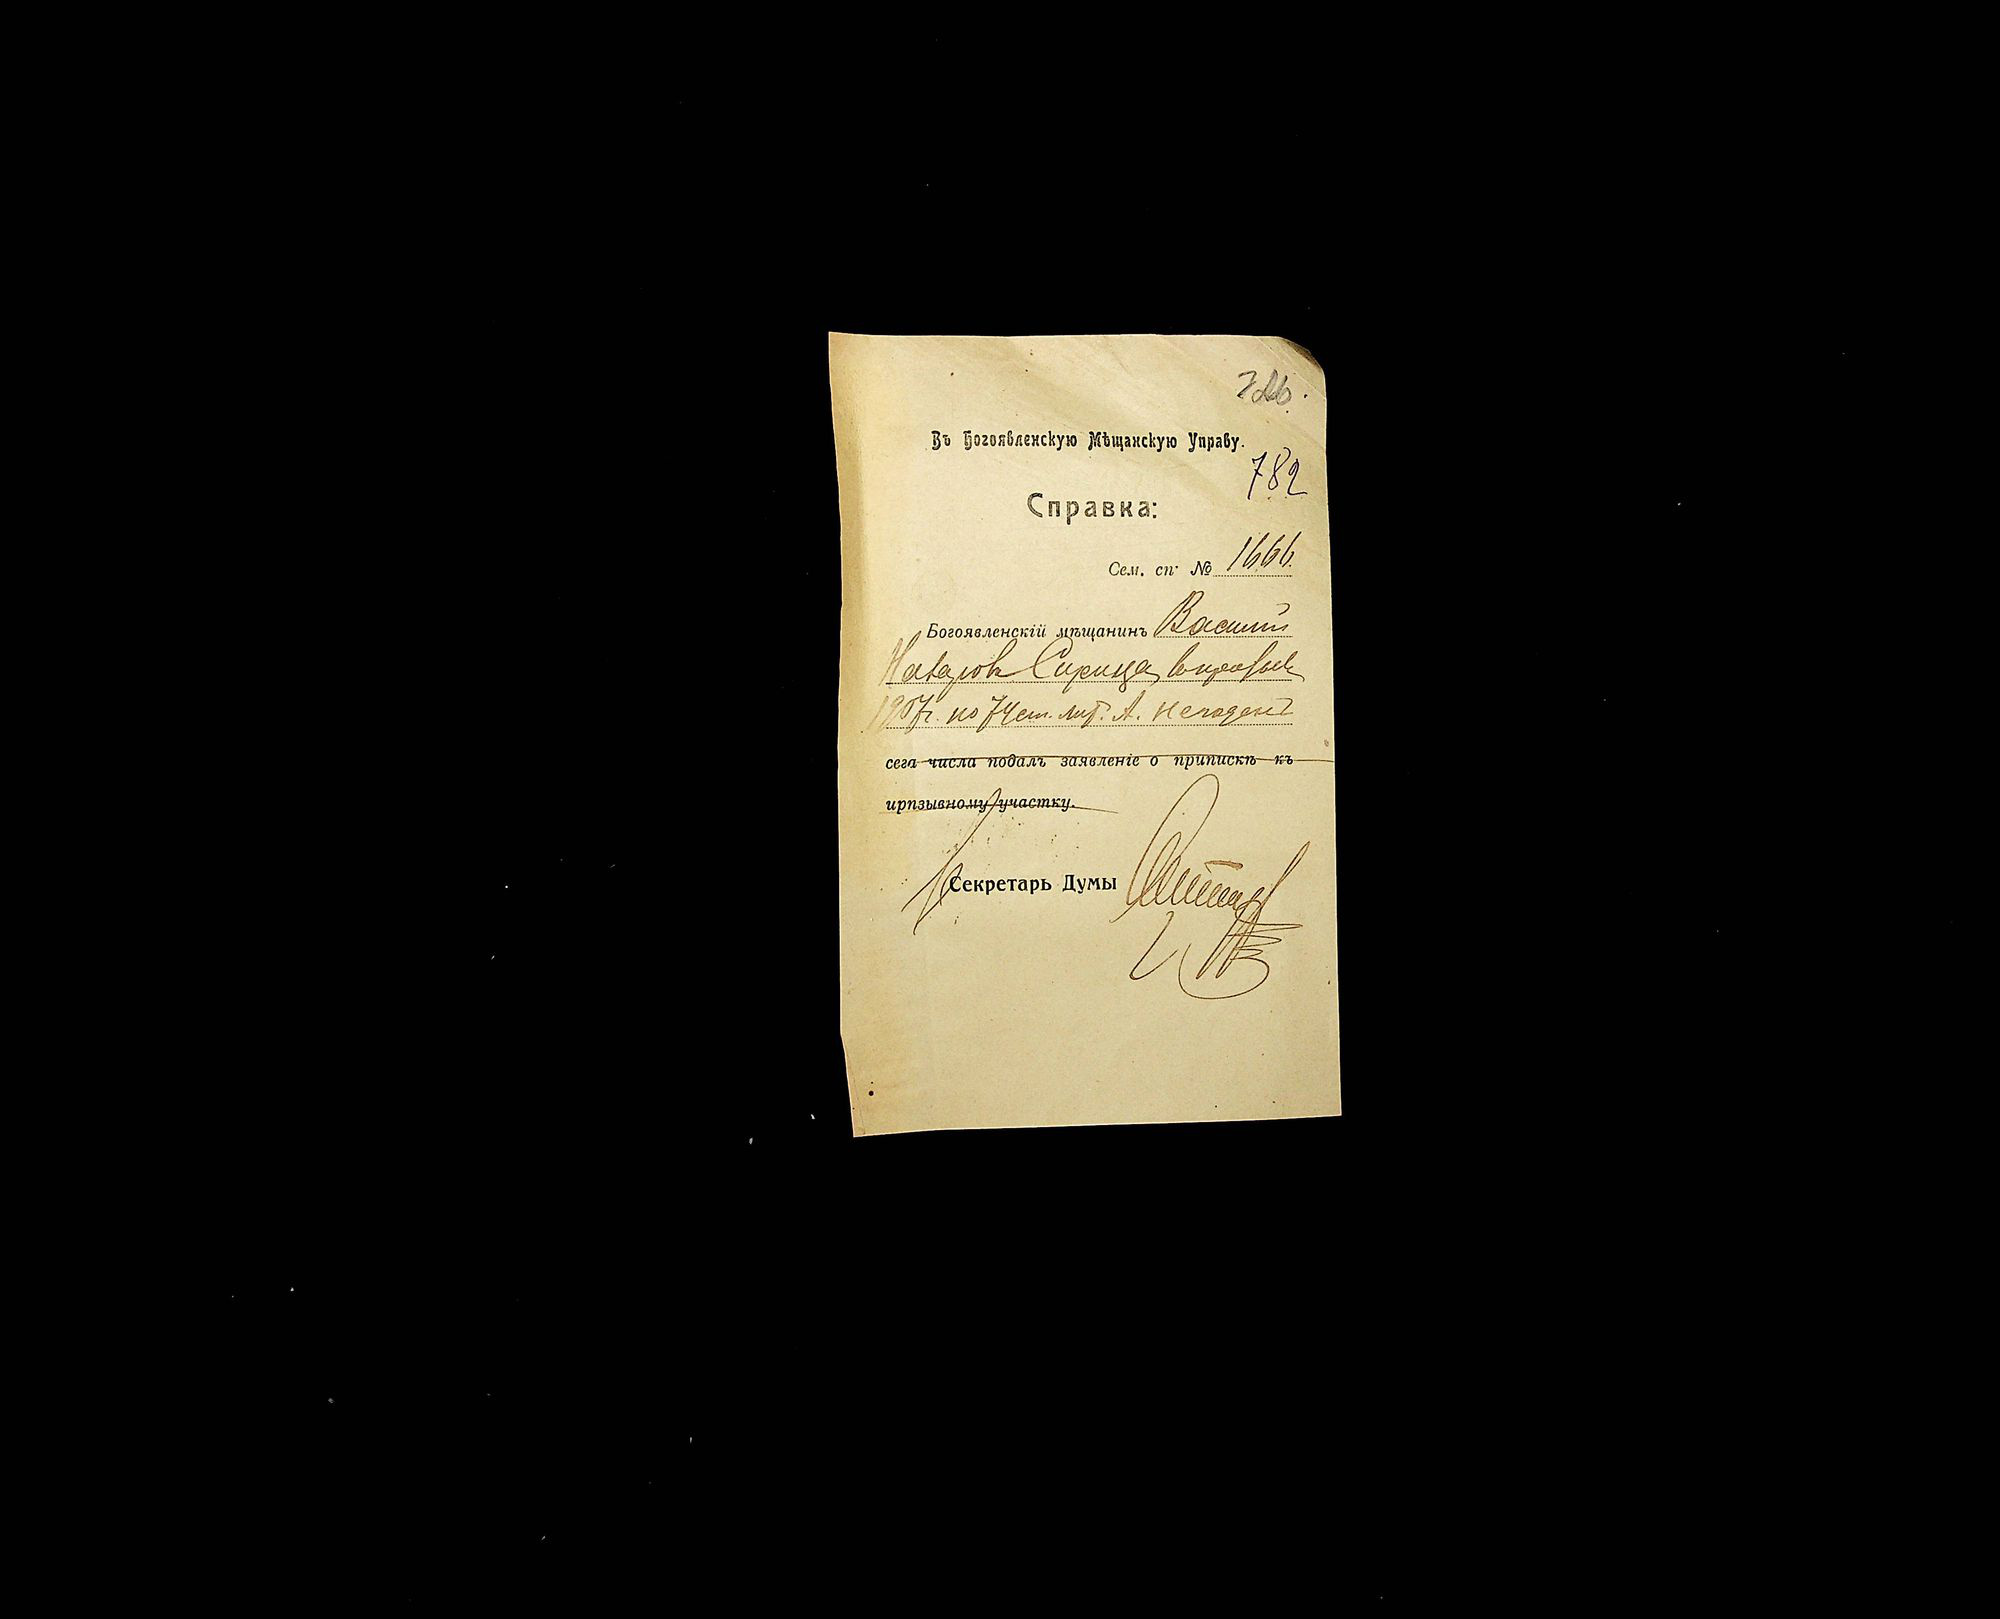 Въ Богоявленскую Мѣщанскую Управу.
782
Справка:
Сем. сп. № 1666.
Богоявленскій мѣщанинъ Василій
Сирица
1907г. по 74 ст. лит. А. негоденъ
сега числа подалъ заявленіе о припискѣ къ
ирпзывному участку.
Секретарь Думы